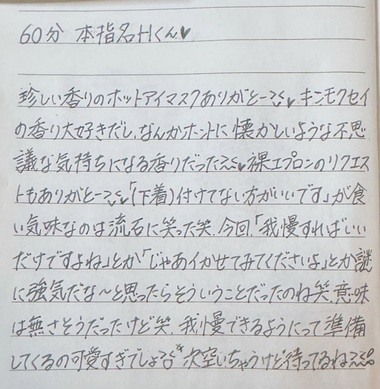 60分 本指名Hくん♥
珍しい香りのホットアイマスクありがと〜〜♥ キンモクセイ
の香り大好きだし、なんかホントに懐かしいような不思
議な気持ちになる香りだった〜〜裸エプロンのリクエス
トもありがと〜〜「(下着)付けてない方がいいです」が食
い気味なのは流石に笑った笑、今回「我慢すればいい
だけですよね」とか「じゃあイかせてみてくださいよ」とか謎
に強気だな〜と思ったらそういうことだったのね笑、意味
は無さそうだったけど笑、我慢できるようにって準備
してくるの可愛すぎでしょ 次空いちゃうけど待ってるね〜〜